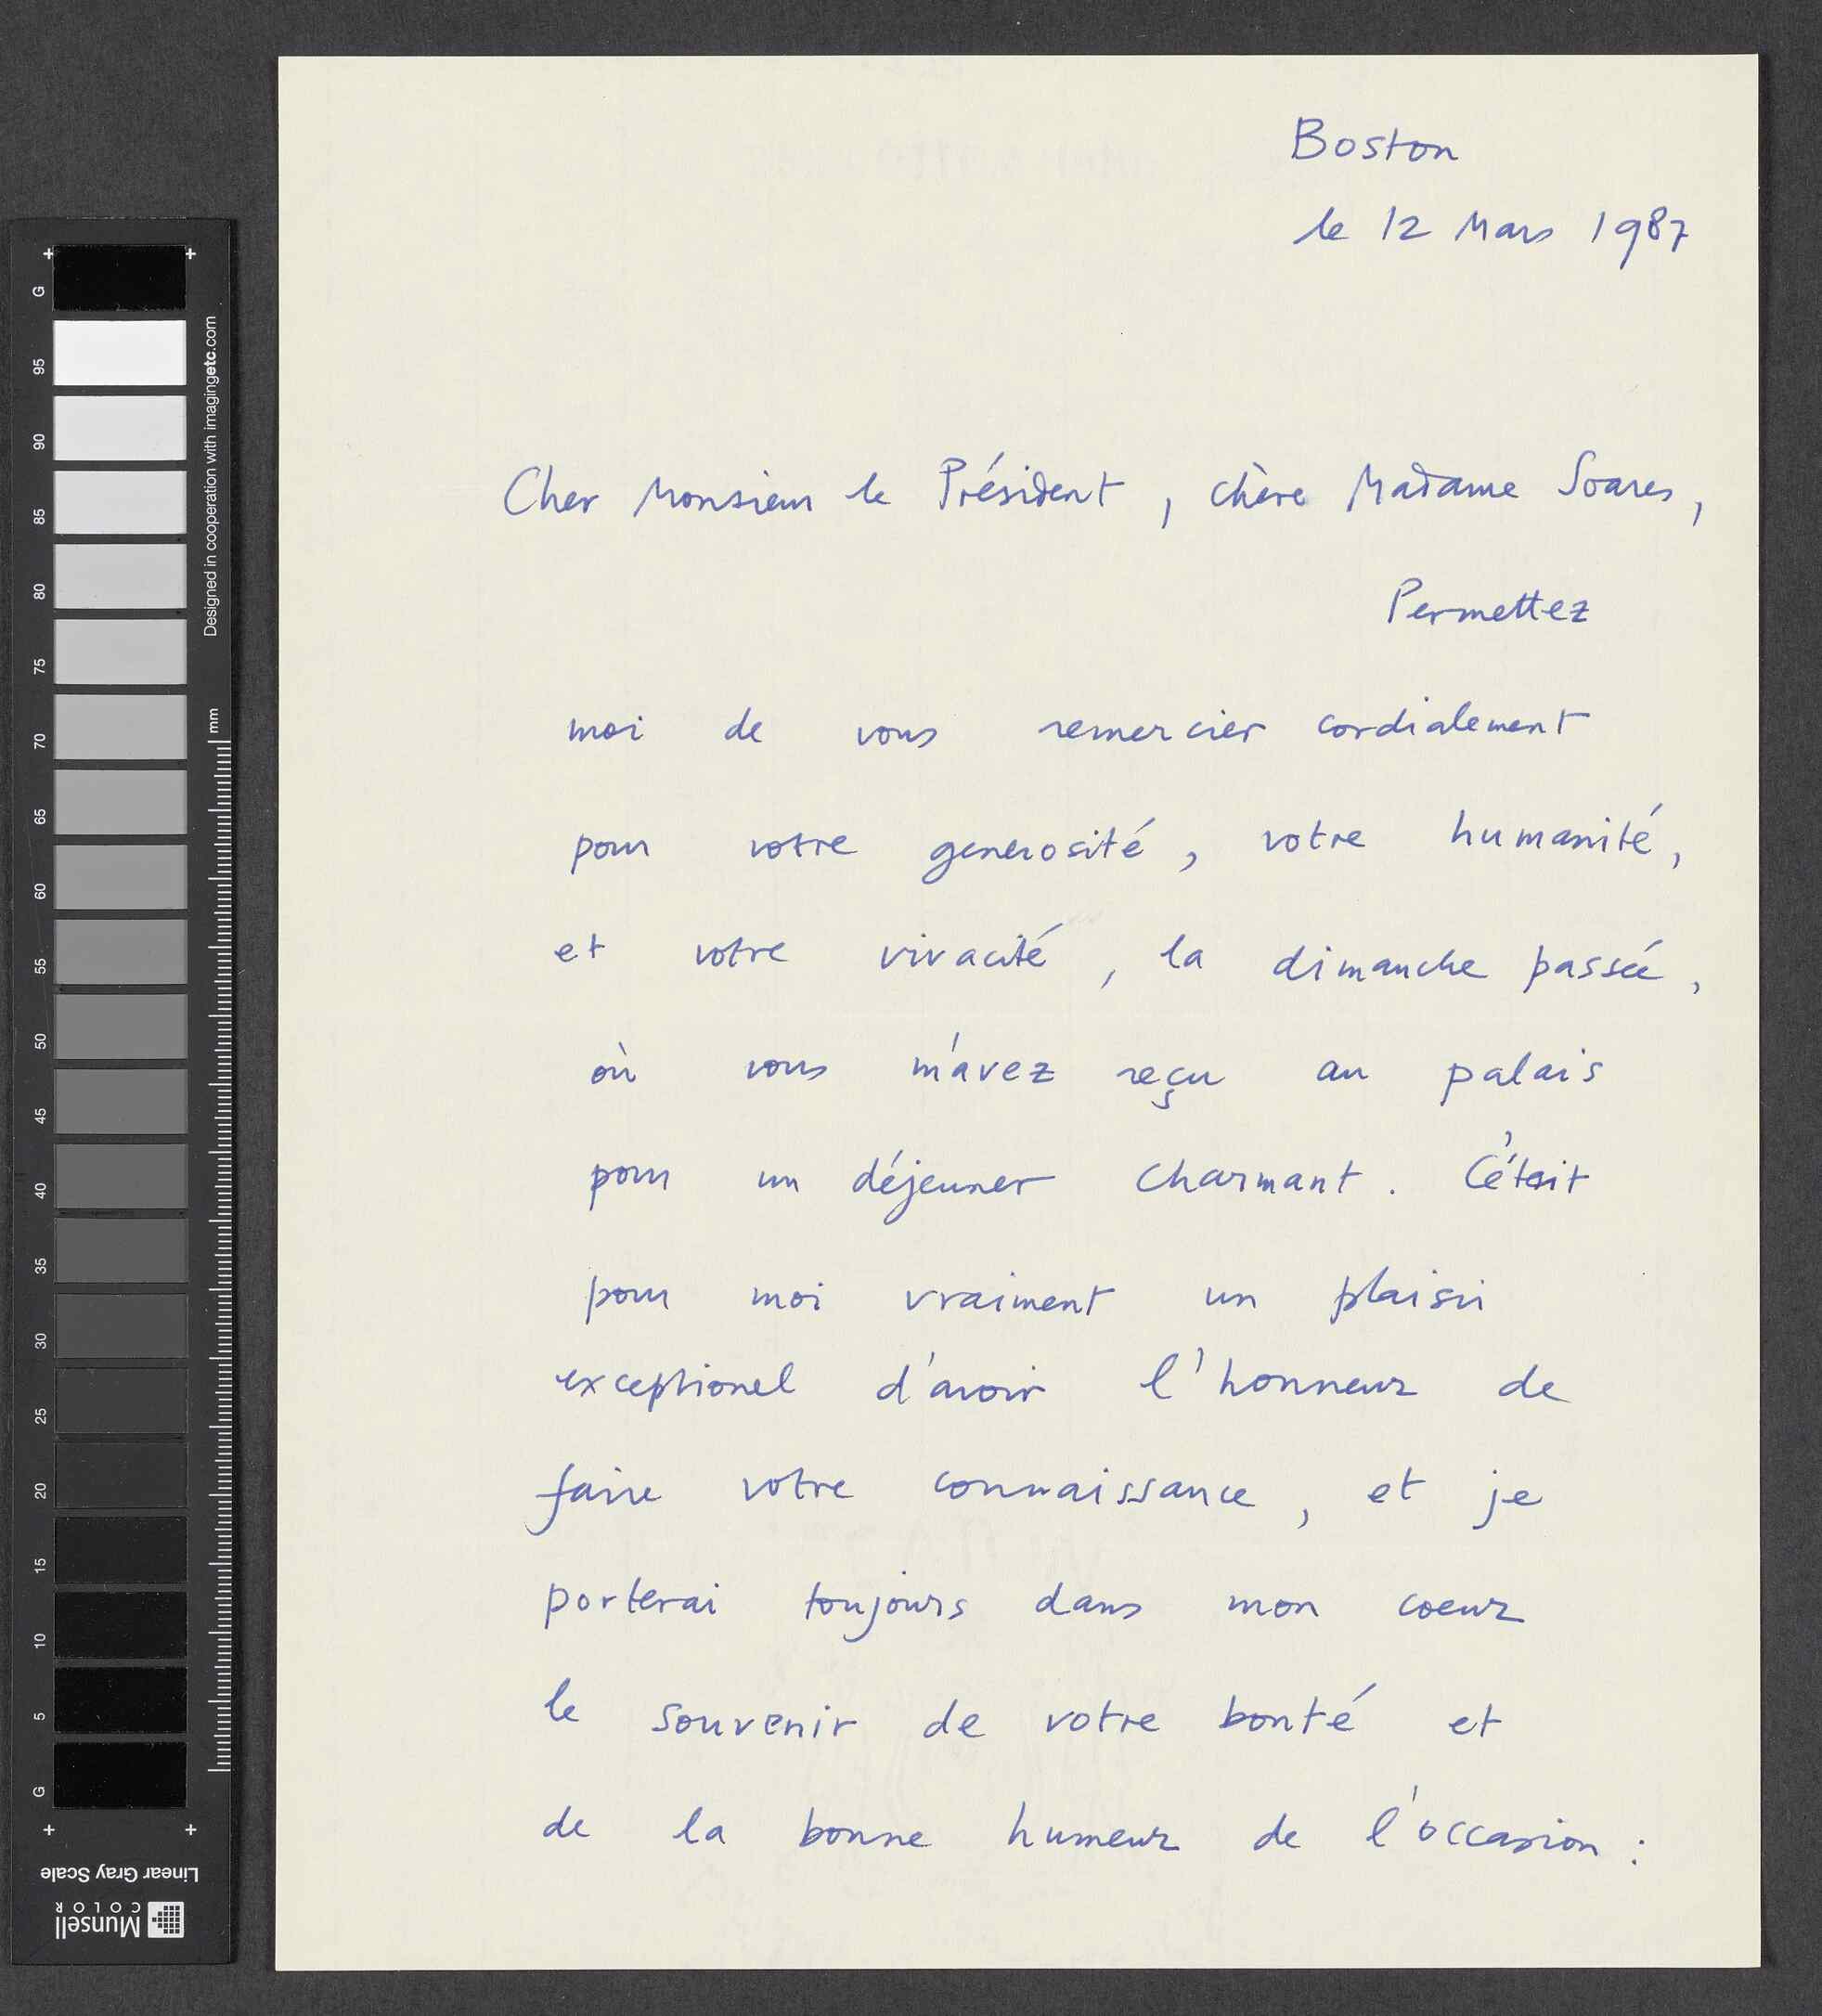 Boston
le 12 Mars 1987
Cher Monsieur le Président, chère Madame Soares,
Permettez
moi de vous remercier cordialement
pour votre generosité, votre humanité,
et votre vivacité, la dimanche passée,
où vous m'avez reçu au palais
pour un déjeuner charmant. C'était
pour moi vraiment un plaisir
exceptionel d'avoir l'honneur de
faire votre connaissance, et je
porterai toujours dans mon coeur
le souvenir de votre bonté et
de la bonne humeur de l'occasion:
G
95
90
85
80
75
70
65
60
55
50
45
40
35
30
25
20
15
10
5
G
Designed in cooperation with imagingetc.com
mm
Linear Gray Scale
Munsell
COLOR